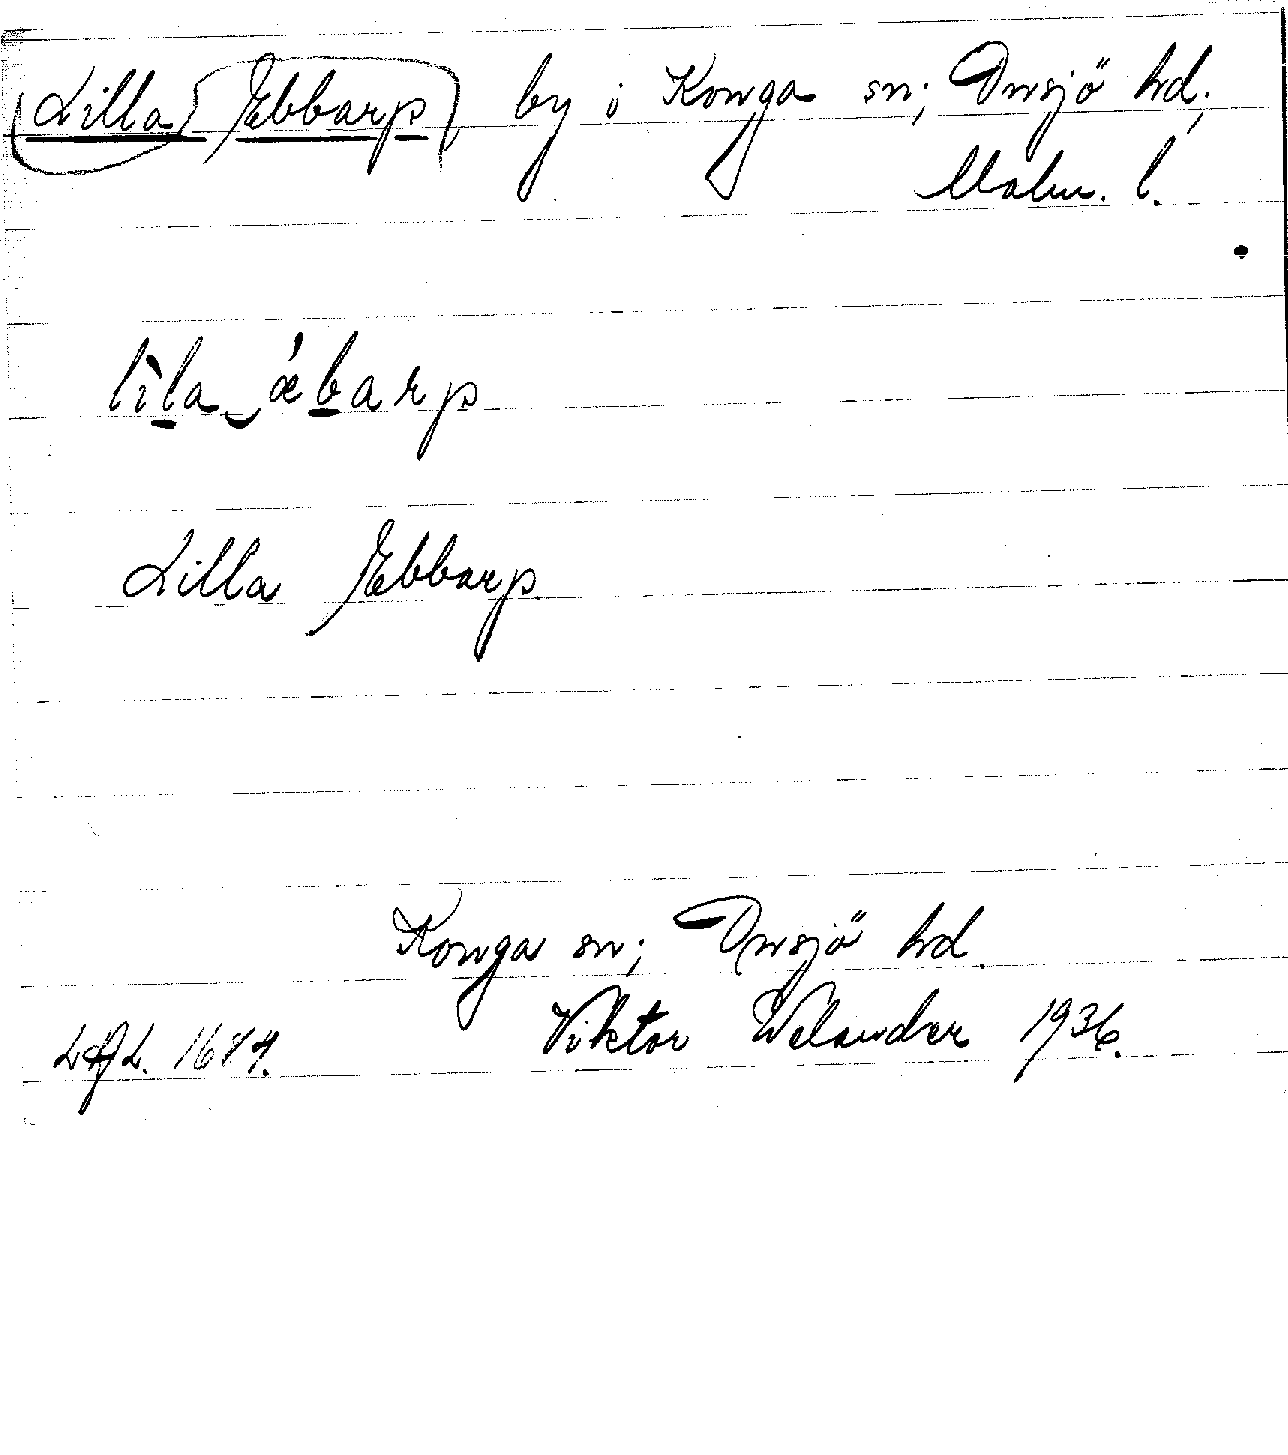 Lilla Ebbarp, by i Konga sn; Onsjö hd;
Malm. l.
lìla ‿ǽbarp
Lilla Ebbarp
Konga sn; Onsjö hd.
Viktor Welander 1936.
LAL.